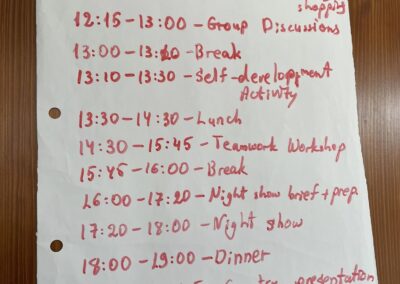 shopping
12:15-13:00-Group Discussions
13:00-13:10-Break
13:10-13:30-Self-development
Activity
13:30-14:30-Lunch
14:30-15:45-Teamwork Workshop
15:45-16:00-Break
16:00-17:20-Night show brief+prep
17:20-18:00-Night show
18:00-19:00-Dinner
presentation